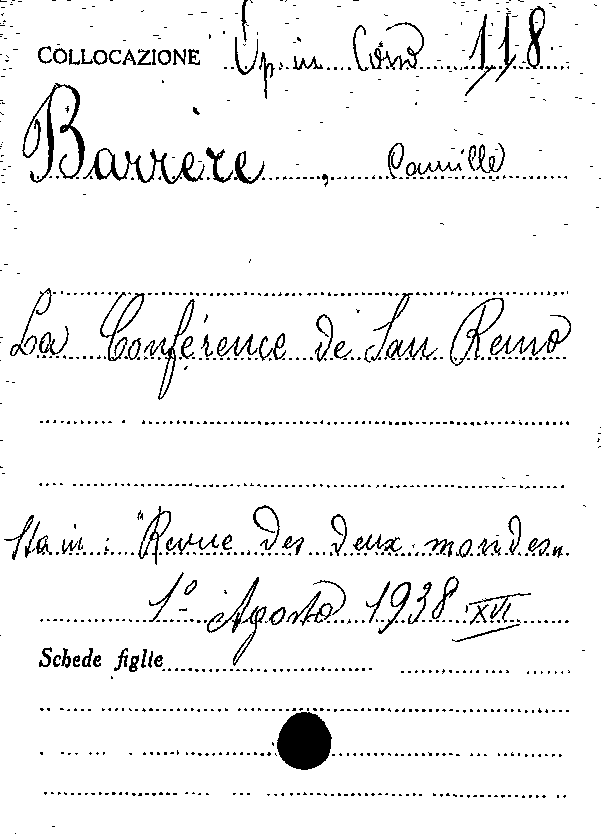 COLLOCAZIONE Op. in Corso 118
Barrère, Camille
La Conférence de San Remo
Sta in: "Revue des deux mondes"
1º Agosto 1938 XVI
Schede figlie